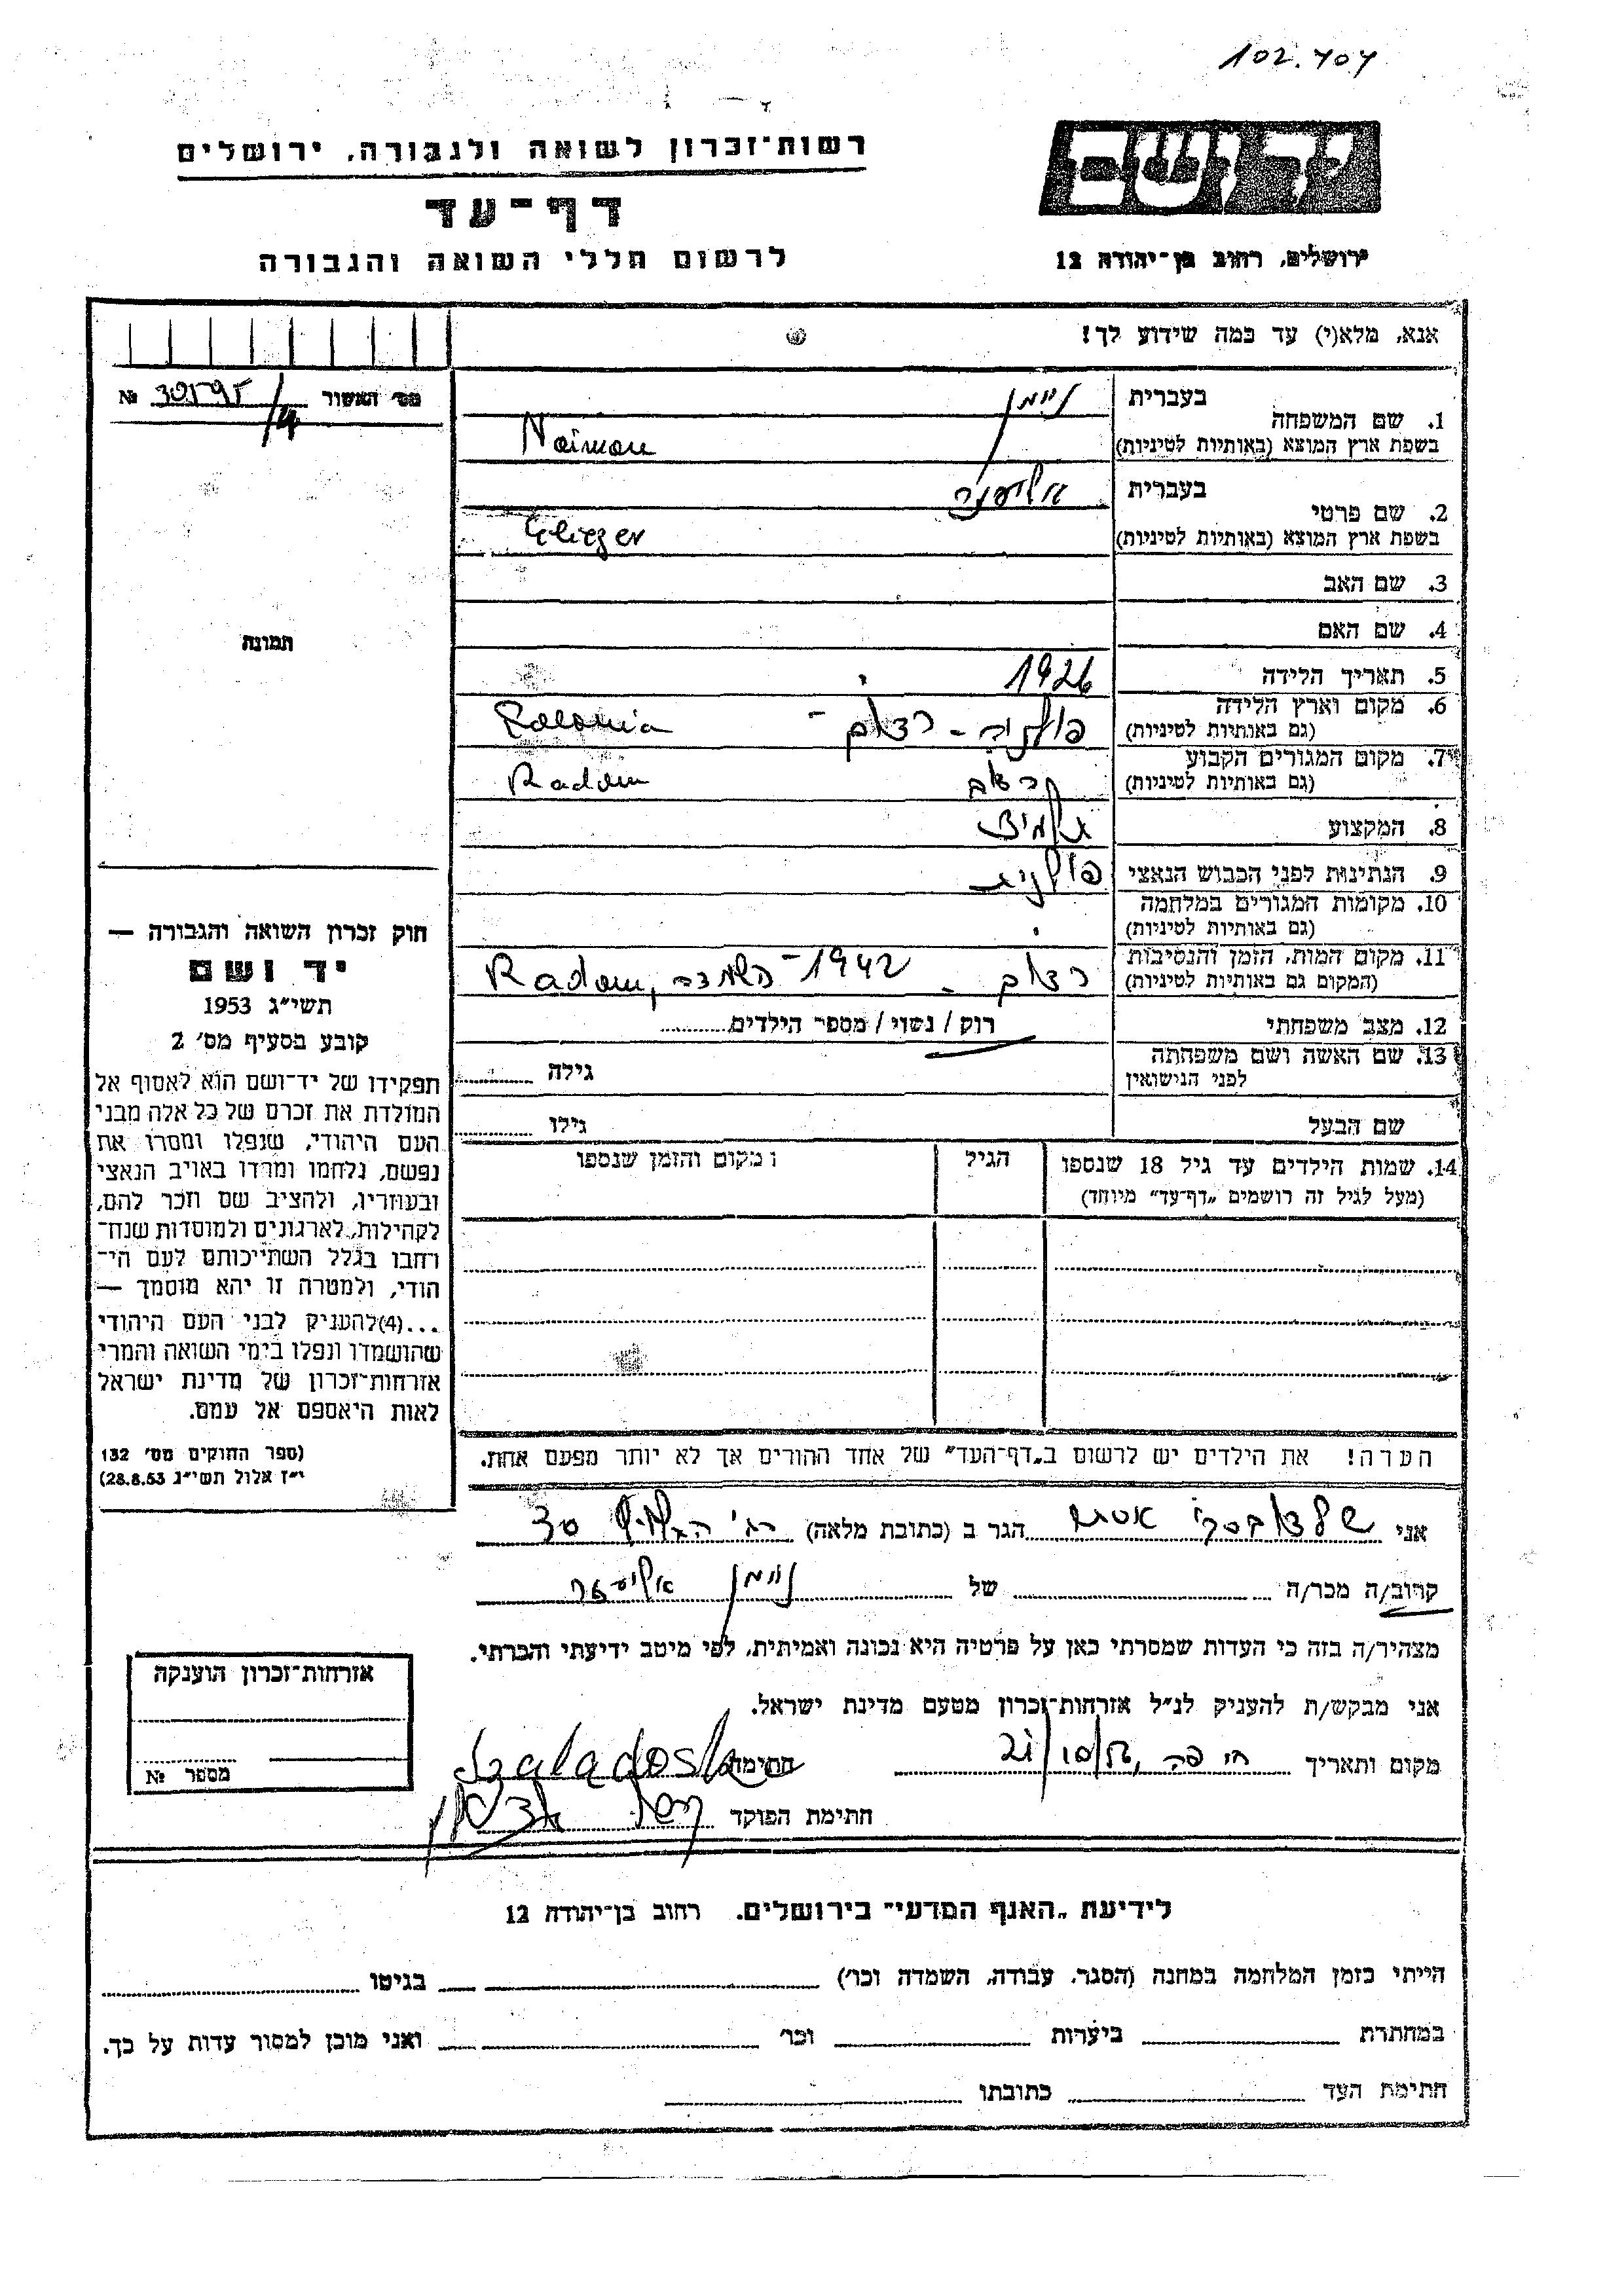 102.404
רשות־זכרון לשואה ולגבורה, ירושלים
יד ושם
דף־עד
לרשום חללי השואה והגבורה
ירושלים, רחוב בן־יהודה 12
אנא, מלא(י) עד כמה שידוע לך!
מס׳ האשור № 
1. שם המשפחה
בעברית ניימן
בשפת ארץ המוצא (באותיות לטיניות) Naiman
2. שם פרטי
בעברית אליעזר
בשפת ארץ המוצא (באותיות לטיניות) Eliezer
3. שם האב
4. שם האם
תמונה
5. תאריך הלידה 1926
6. מקום וארץ הלידה
(גם באותיות לטיניות) פולניה - רדום -
7. מקום המגורים הקבוע
(גם באותיות לטיניות) רדום Radom
8. המקצוע תלמיד
9. הנתינות לפני הכבוש הנאצי פולנית
10. מקומות המגורים במלחמה
(גם באותיות לטיניות)
11. מקום המות, הזמן והנסיבות
(המקום גם באותיות לטיניות) רדום - 1942 - השמדה Radom,
12. מצב משפחתי רוק / נשוי / מספר הילדים
13. שם האשה ושם משפחתה
לפני הנישואין גילה
שם הבעל גילו
14. שמות הילדים עד גיל 18 שנספו הגיל מקום והזמן שנספו
(מעל לגיל זה רושמים „דף־עד” מיוחד)
חוק זכרון השואה והגבורה —
יד ושם
תשי״ג 1953
קובע בסעיף מס׳ 2
תפקידו של יד־ושם הוא לאסוף אל
המולדת את זכרם של כל אלה מבני
העם היהודי, שנפלו ומסרו את
נפשם, נלחמו ומרדו באויב הנאצי
ובעוזריו, ולהציב שם וזכר להם,
לקהילות, לארגונים ולמוסדות שנח־
רחבו בגלל השתייכותם לעם הי־
הודי, ולמטרה זו יהא מוסמך —
...(4)להעניק לבני העם היהודי
שהושמדו ונפלו בימי השואה והמרי
אזרחות־זכרון של מדינת ישראל
לאות היאספם אל עמם.
(ספר החוקים מס׳ 132
י״ז אלול תשי״ג 28.8.53)
הערה! את הילדים יש לרשום ב„דף־העד” של אחד ההורים אך לא יותר מפעם אחת.
אני אסתר הגר ב (כתובת מלאה) 30
קרוב/ה מכר/ה של ניימן אליעזר
מצהיר/ה בזה כי העדות שמסרתי כאן על פרטיה היא נכונה ואמיתית, לפי מיטב ידיעתי והכרתי.
אני מבקש/ת להעניק לנ״ל אזרחות־זכרון מטעם מדינת ישראל.
מקום ותאריך חיפה, חתימה
חתימת הפוקד
אזרחות־זכרון הוענקה
מספר №
לידיעת „האגף המדעי” בירושלים. רחוב בן־יהודה 12
הייתי בזמן המלחמה במחנה (הסגר, עבודה, השמדה וכו׳) בגיטו
במחתרת ביערות וכו׳ ואני מוכן למסור עדות על כך.
חתימת העד כתובתו